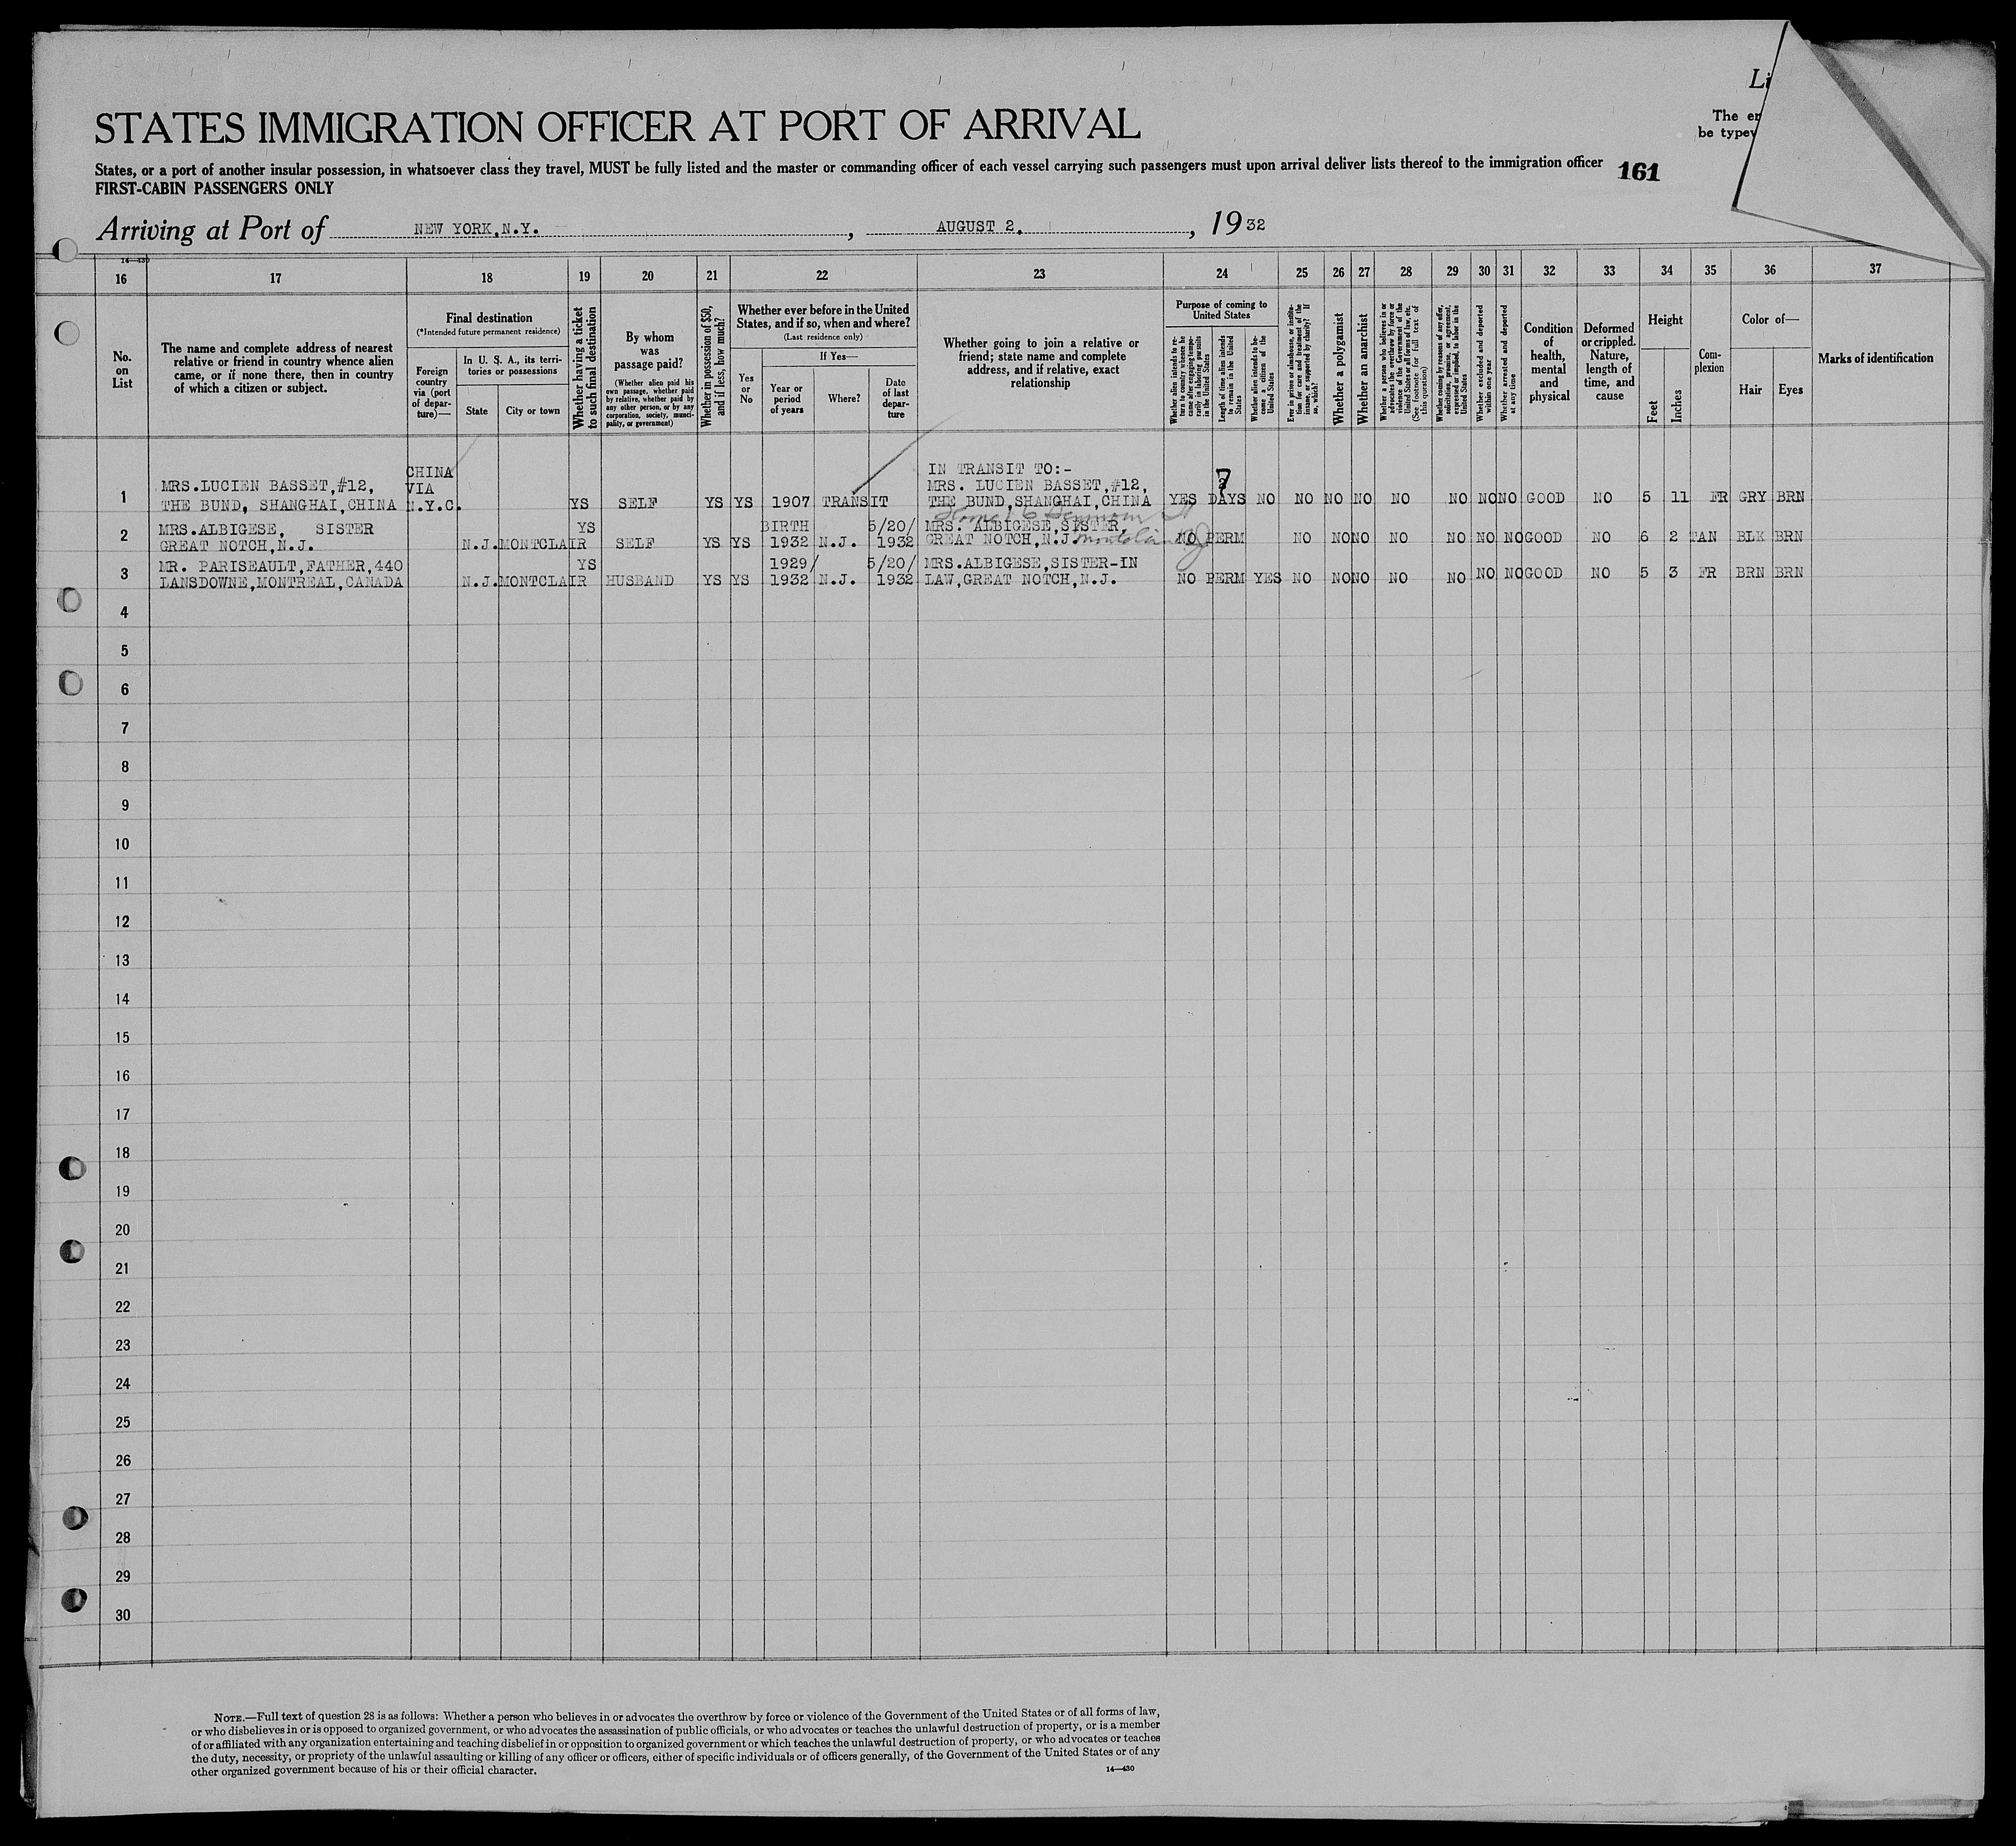 Li
The er
be typev
STATES IMMIGRATION OFFICER AT PORT OF ARRIVAL
States, or a port of another insular possession, in whatsoever class they travel, MUST be fully listed and the master or commanding officer of each vessel carrying such passengers must upon arrival deliver lists thereof to the immigration officer
161
FIRST-CABIN PASSENGERS ONLY
Arriving at Port of NEW YORK,N.Y. , AUGUST 2, , 1932
14—430
16 17 18 19 20 21 22 23 24 25 26 27 28 29 30 31 32 33 34 35 36 37
No. on List
The name and complete address of nearest relative or friend in country whence alien came, or if none there, then in country of which a citizen or subject.
Final destination
(*Intended future permanent residence)
Foreign country via (port of departure)—
In U. S. A., its territories or possessions
State
City or town
Whether having a ticket to such final destination
By whom was passage paid?
(Whether alien paid his own passage, whether paid by relative, whether paid by any other person, or by any corporation, society, municipality, or government)
Whether in possession of $50, and if less, how much?
Whether ever before in the United States, and if so, when and where?
(Last residence only)
Yes or No
If Yes—
Year or period of years
Where?
Date of last departure
Whether going to join a relative or friend; state name and complete address, and if relative, exact relationship
Purpose of coming to United States
Whether alien intends to return to country whence he came after engaging temporarily in laboring pursuits in the United States
Length of time alien intends to remain in the United States
Whether alien intends to become a citizen of the United States
Ever in prison or almshouse, or institution for care and treatment of the insane, or supported by charity? If so, which?
Whether a polygamist
Whether an anarchist
Whether a person who believes in or advocates the overthrow by force or violence of the Government of the United States or all forms of law, etc. (See footnote for full text of this question)
Whether coming by reasons of any offer, solicitation, promise, or agreement, expressed or implied, to labor in the United States
Whether excluded and deported within one year
Whether arrested and deported at any time
Condition of health, mental and physical
Deformed or crippled. Nature, length of time, and cause
Height
Feet
Inches
Complexion
Color of—
Hair
Eyes
Marks of identification
1 MRS.LUCIEN BASSET,#12, THE BUND, SHANGHAI,CHINA CHINA VIA N.Y.C. YS SELF YS YS 1907 TRANSIT IN TRANSIT TO:- MRS. LUCIEN BASSET,#12, THE BUND,SHANGHAI,CHINA YES 7 DAYS NO NO NO NO NO NO NO NO GOOD NO 5 11 FR GRY BRN
2 MRS.ALBIGESE, SISTER GREAT NOTCH,N.J. N.J. MONTCLAIR YS SELF YS YS BIRTH 1932 N.J. 5/20/ 1932 MRS. ALBIGESE,SISTER, GREAT NOTCH,N.J. NO PERM NO NO NO NO NO NO NO GOOD NO 6 2 TAN BLK BRN
3 MR. PARISEAULT,FATHER,440 LANSDOWNE,MONTREAL,CANADA N.J. MONTCLAIR YS HUSBAND YS YS 1929/ 1932 N.J. 5/20/ 1932 MRS.ALBIGESE,SISTER-IN LAW,GREAT NOTCH,N.J. NO PERM YES NO NO NO NO NO NO NO GOOD NO 5 3 FR BRN BRN
4
5
6
7
8
9
10
11
12
13
14
15
16
17
18
19
20
21
22
23
24
25
26
27
28
29
30
NOTE.—Full text of question 28 is as follows: Whether a person who believes in or advocates the overthrow by force or violence of the Government of the United States or of all forms of law,
or who disbelieves in or is opposed to organized government, or who advocates the assassination of public officials, or who advocates or teaches the unlawful destruction of property, or is a member
of or affiliated with any organization entertaining and teaching disbelief in or opposition to organized government or which teaches the unlawful destruction of property, or who advocates or teaches
the duty, necessity, or propriety of the unlawful assaulting or killing of any officer or officers, either of specific individuals or of officers generally, of the Government of the United States or of any
other organized government because of his or their official character.
14—430